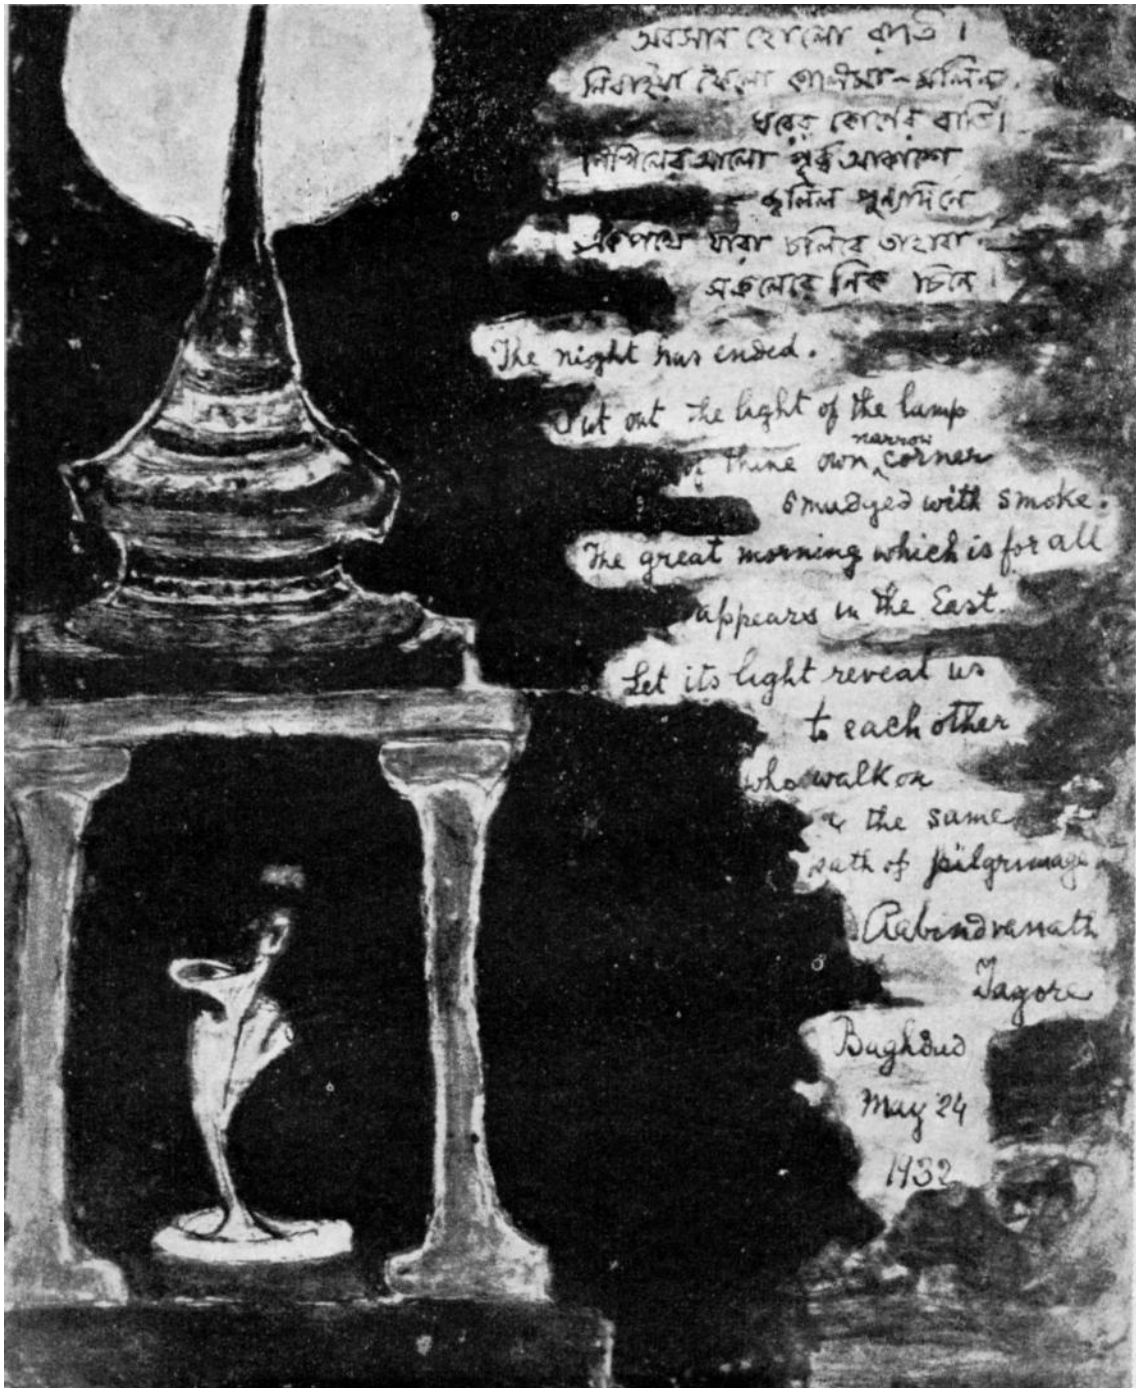 অবসান হোলো রাতি ।
নিবাইয়া ফেলো কালিমা-মলিন
ঘরের কোণের বাতি।
নিখিলের আলো পূর্ব্ব আকাশে
জ্বলিল পুণ্যদিনে
একপথে যারা চলিবে তাহারা
সকলেরে নিক চিনে ।
The night has ended.
Put out the light of the lamp
of thine own narrow corner
smudged with smoke.
The great morning which is for all
appears in the East.
Let its light reveal us
to each other
who walk on
the same
path of pilgrimage.
Rabindranath
Tagore
Baghdad
May 24
1932